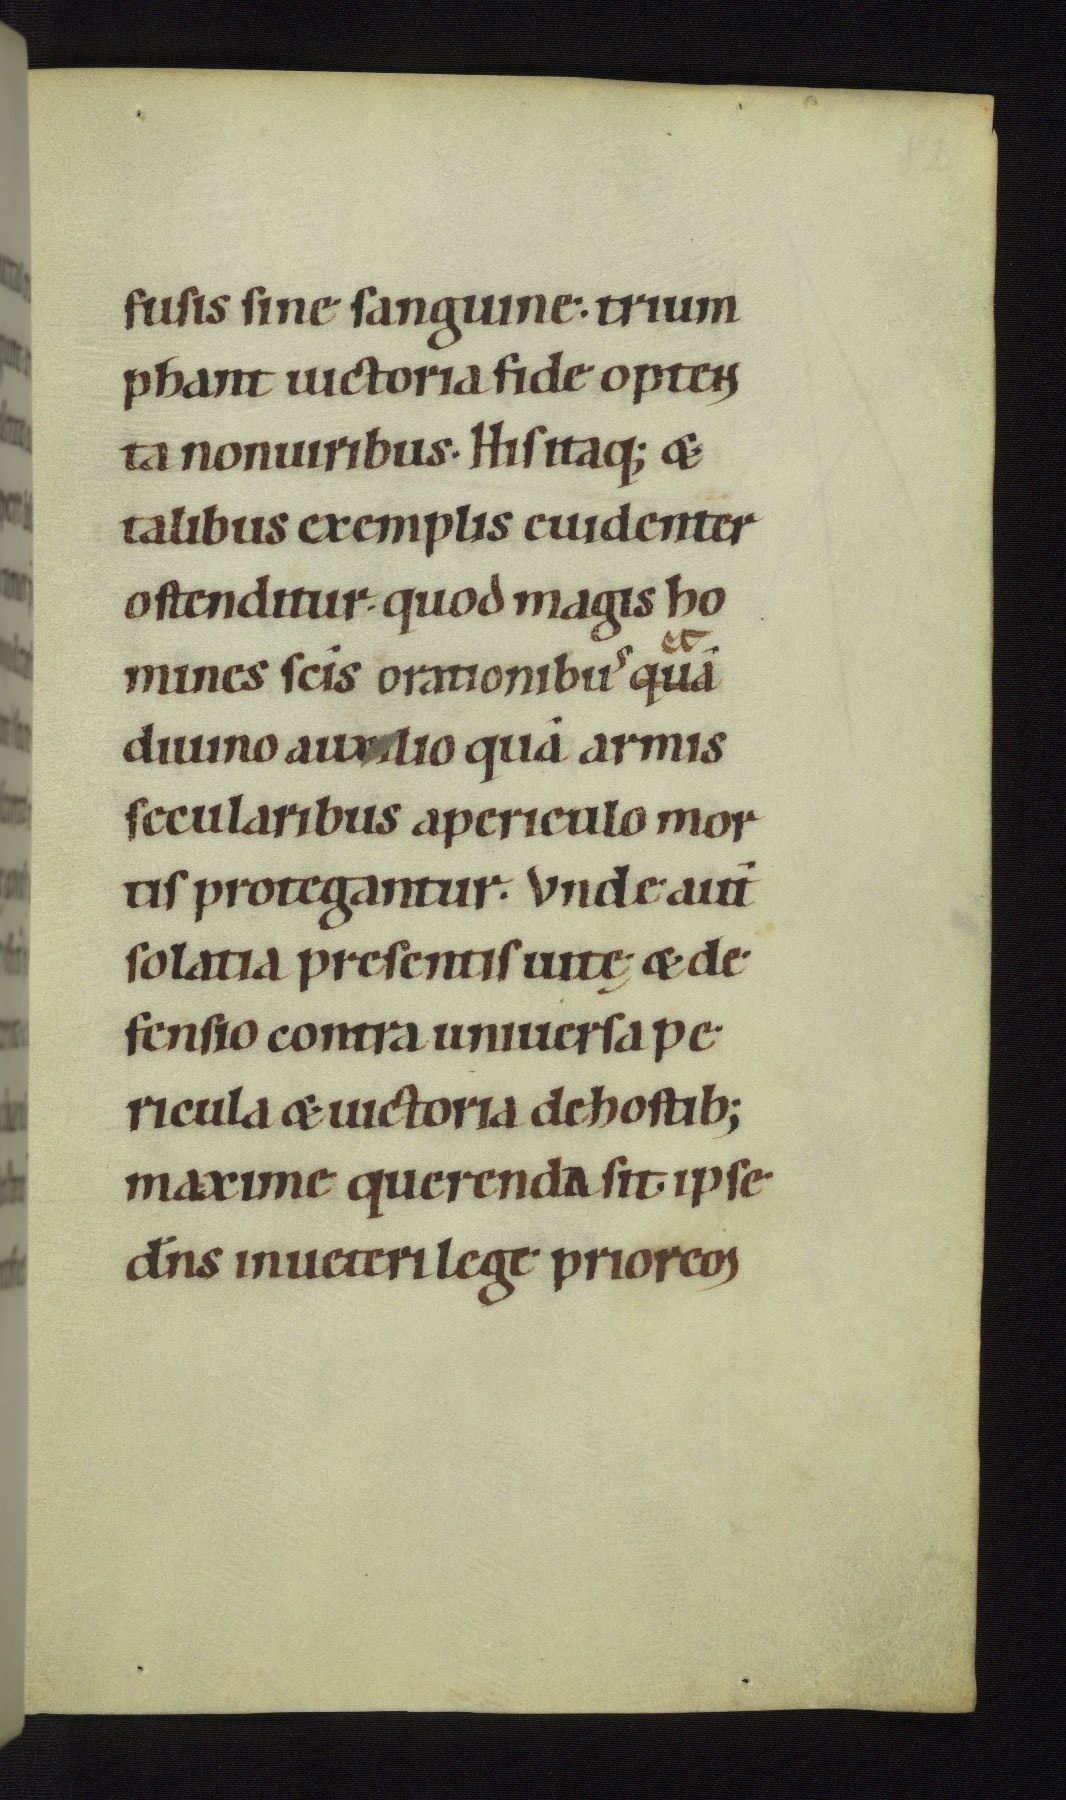 fusis sine sanguine. trium
phant uictoria fide opten
ta nonuiribus. His itaq; &
talibus exemplis euidenter
ostenditur. quod magis ho
et
mines scis orationibus quá
diuino auxilio quá armis
secularibus apericulo mor
tis protegantur. Vnde aut
solatia presentis uitę & de
fensio contra uniuersa pe
ricula & uictoria dehostib;
maxime querenda sit. ipse
dns inueteri lege prioreos